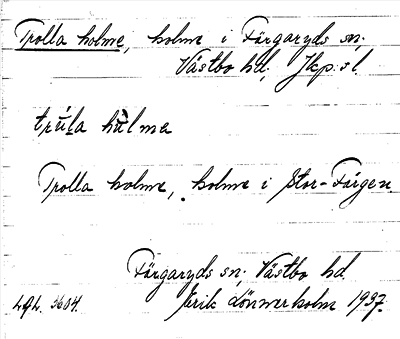 Trolla holme, holme i Färgaryds sn;
Västbo hd, Jkp. sl.
trúla hùlma
Trolla holme, holme i Stor-Färgen.
Färgaryds sn; Västbo hd.
Erik Lönnerholm 1937.
3604.